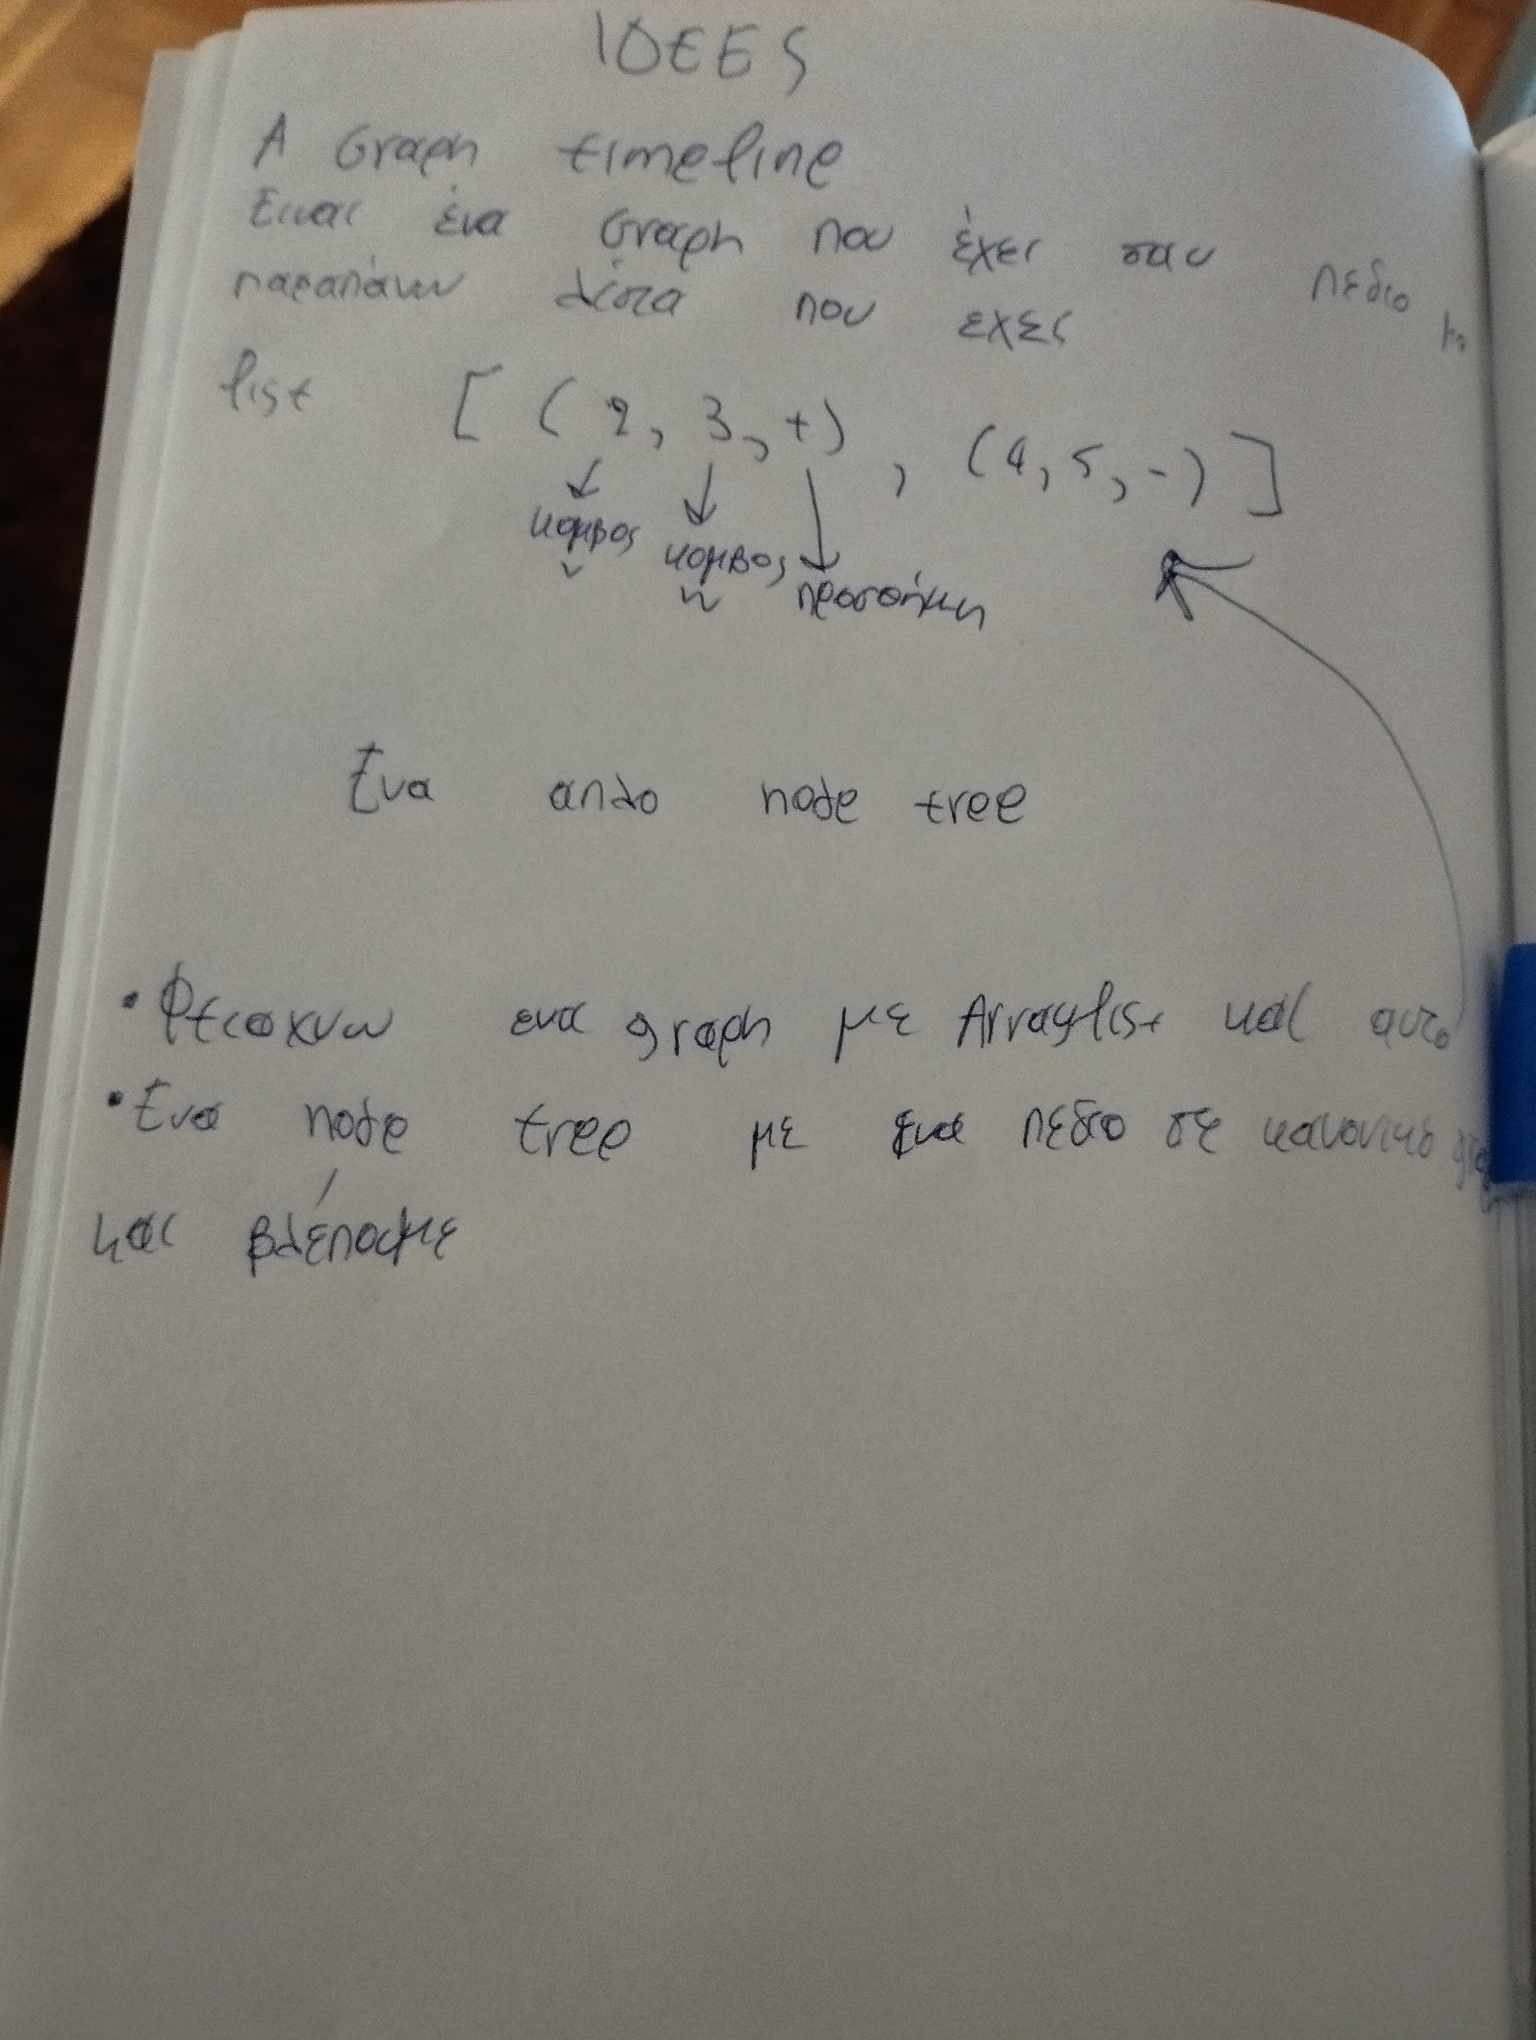 ΙΔΕΕΣ
A Graph timeline
Ειναι ένα Graph που έχει σαν πεδιο
παραπάνω λίστα που εχει
list [ ( 2, 3, +) , (4, 5, -) ]
κομβος κομβος προσθήκη
ν ν
Ενα απλο node tree
• Φτιαχνω ενα graph με Arraylist και αυτο
• Ενα node tree με ενα πεδιο σε κανονικο
και βλέπουμε